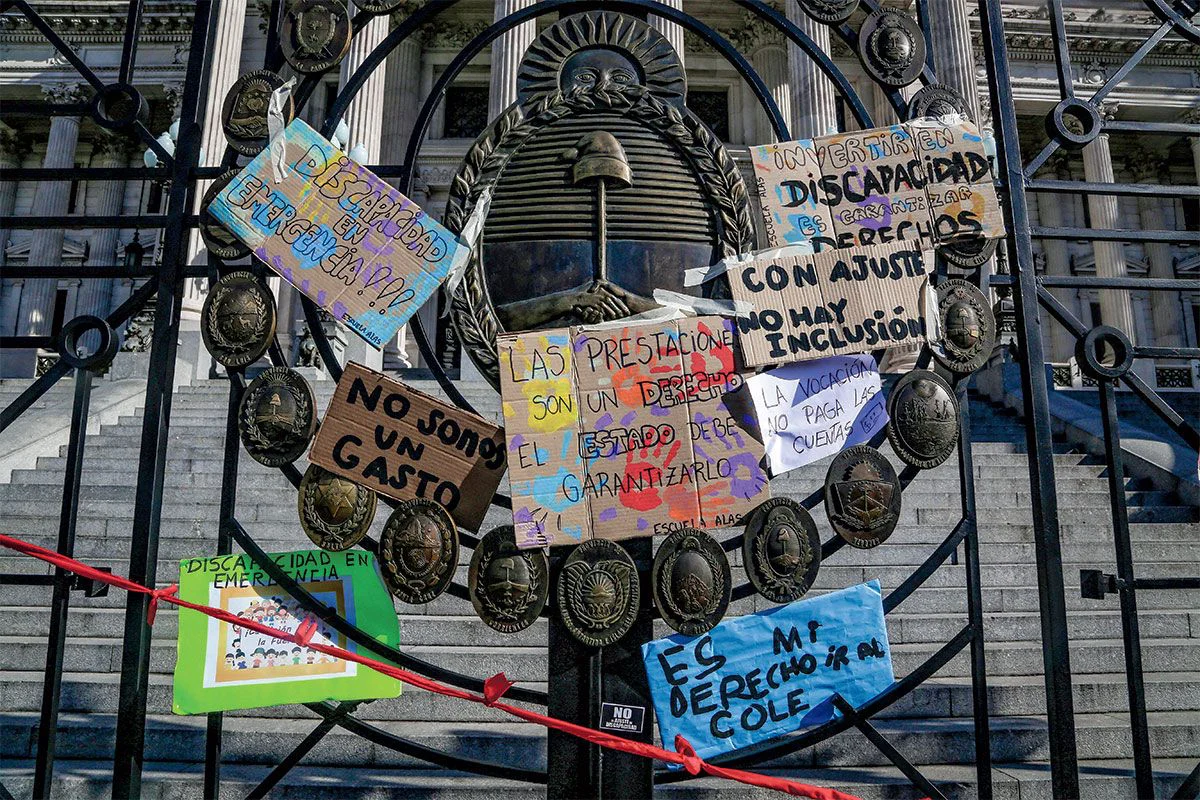 DISCAPACIDAD
EN
EMERGENCIA!!!!
ESCUELA ALAS
INVERTIR EN
DISCAPACIDAD
ES GARANTIZAR
DERECHOS
ESCUELA ALAS
CON AJUSTE
NO HAY
INCLUSIÓN
LAS PRESTACIONE
SON UN DERECHO
EL ESTADO DEBE
GARANTIZARLO
ESCUELA ALAS
LA VOCACIÓN
NO PAGA LAS
CUENTAS
NO SOMOS
UN
GASTO
DISCAPACIDAD EN
EMERGENCIA
la Fue
ES MI
DERECHO IR AL
COLE
NO